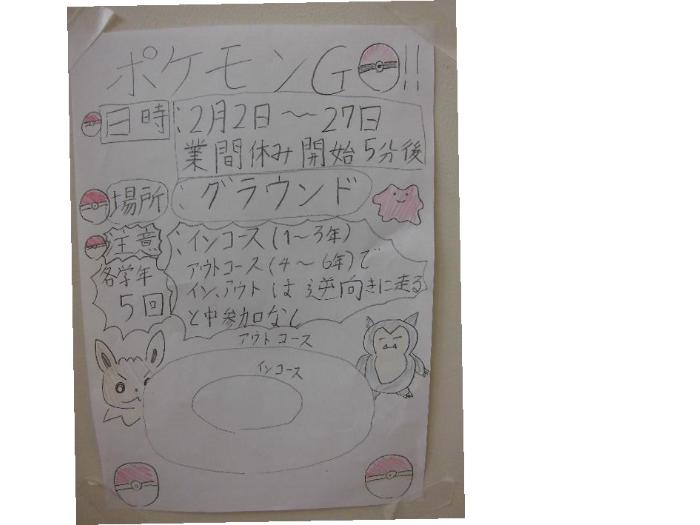 ポケモンGO!!
日時:2月2日～27日
業間休み開始5分後
場所:グラウンド
注意:インコース(1～3年)
アウトコース(4～6年)で
イン、アウトは逆向きに走る
と中参加なし
各学年
5回
アウトコース
インコース